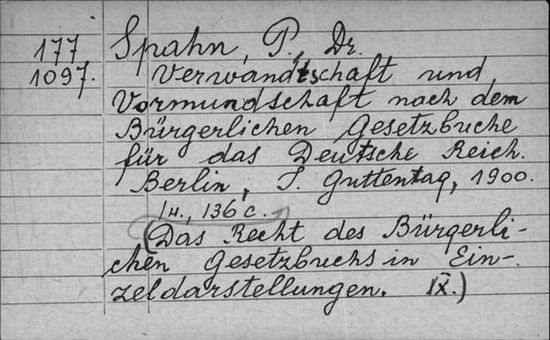 177
1097.
Spahn, P., Dr.
Verwandtschaft und
Vormundschaft nach dem
Bürgerlichen Gesetzbuche
für das Deutsche Reich.
Berlin, J. Guttentag, 1900.
1н., 136 с.
(Das Recht des Bürgerli-
chen Gesetzbuchs in Ein-
zeldarstellungen. IX.)